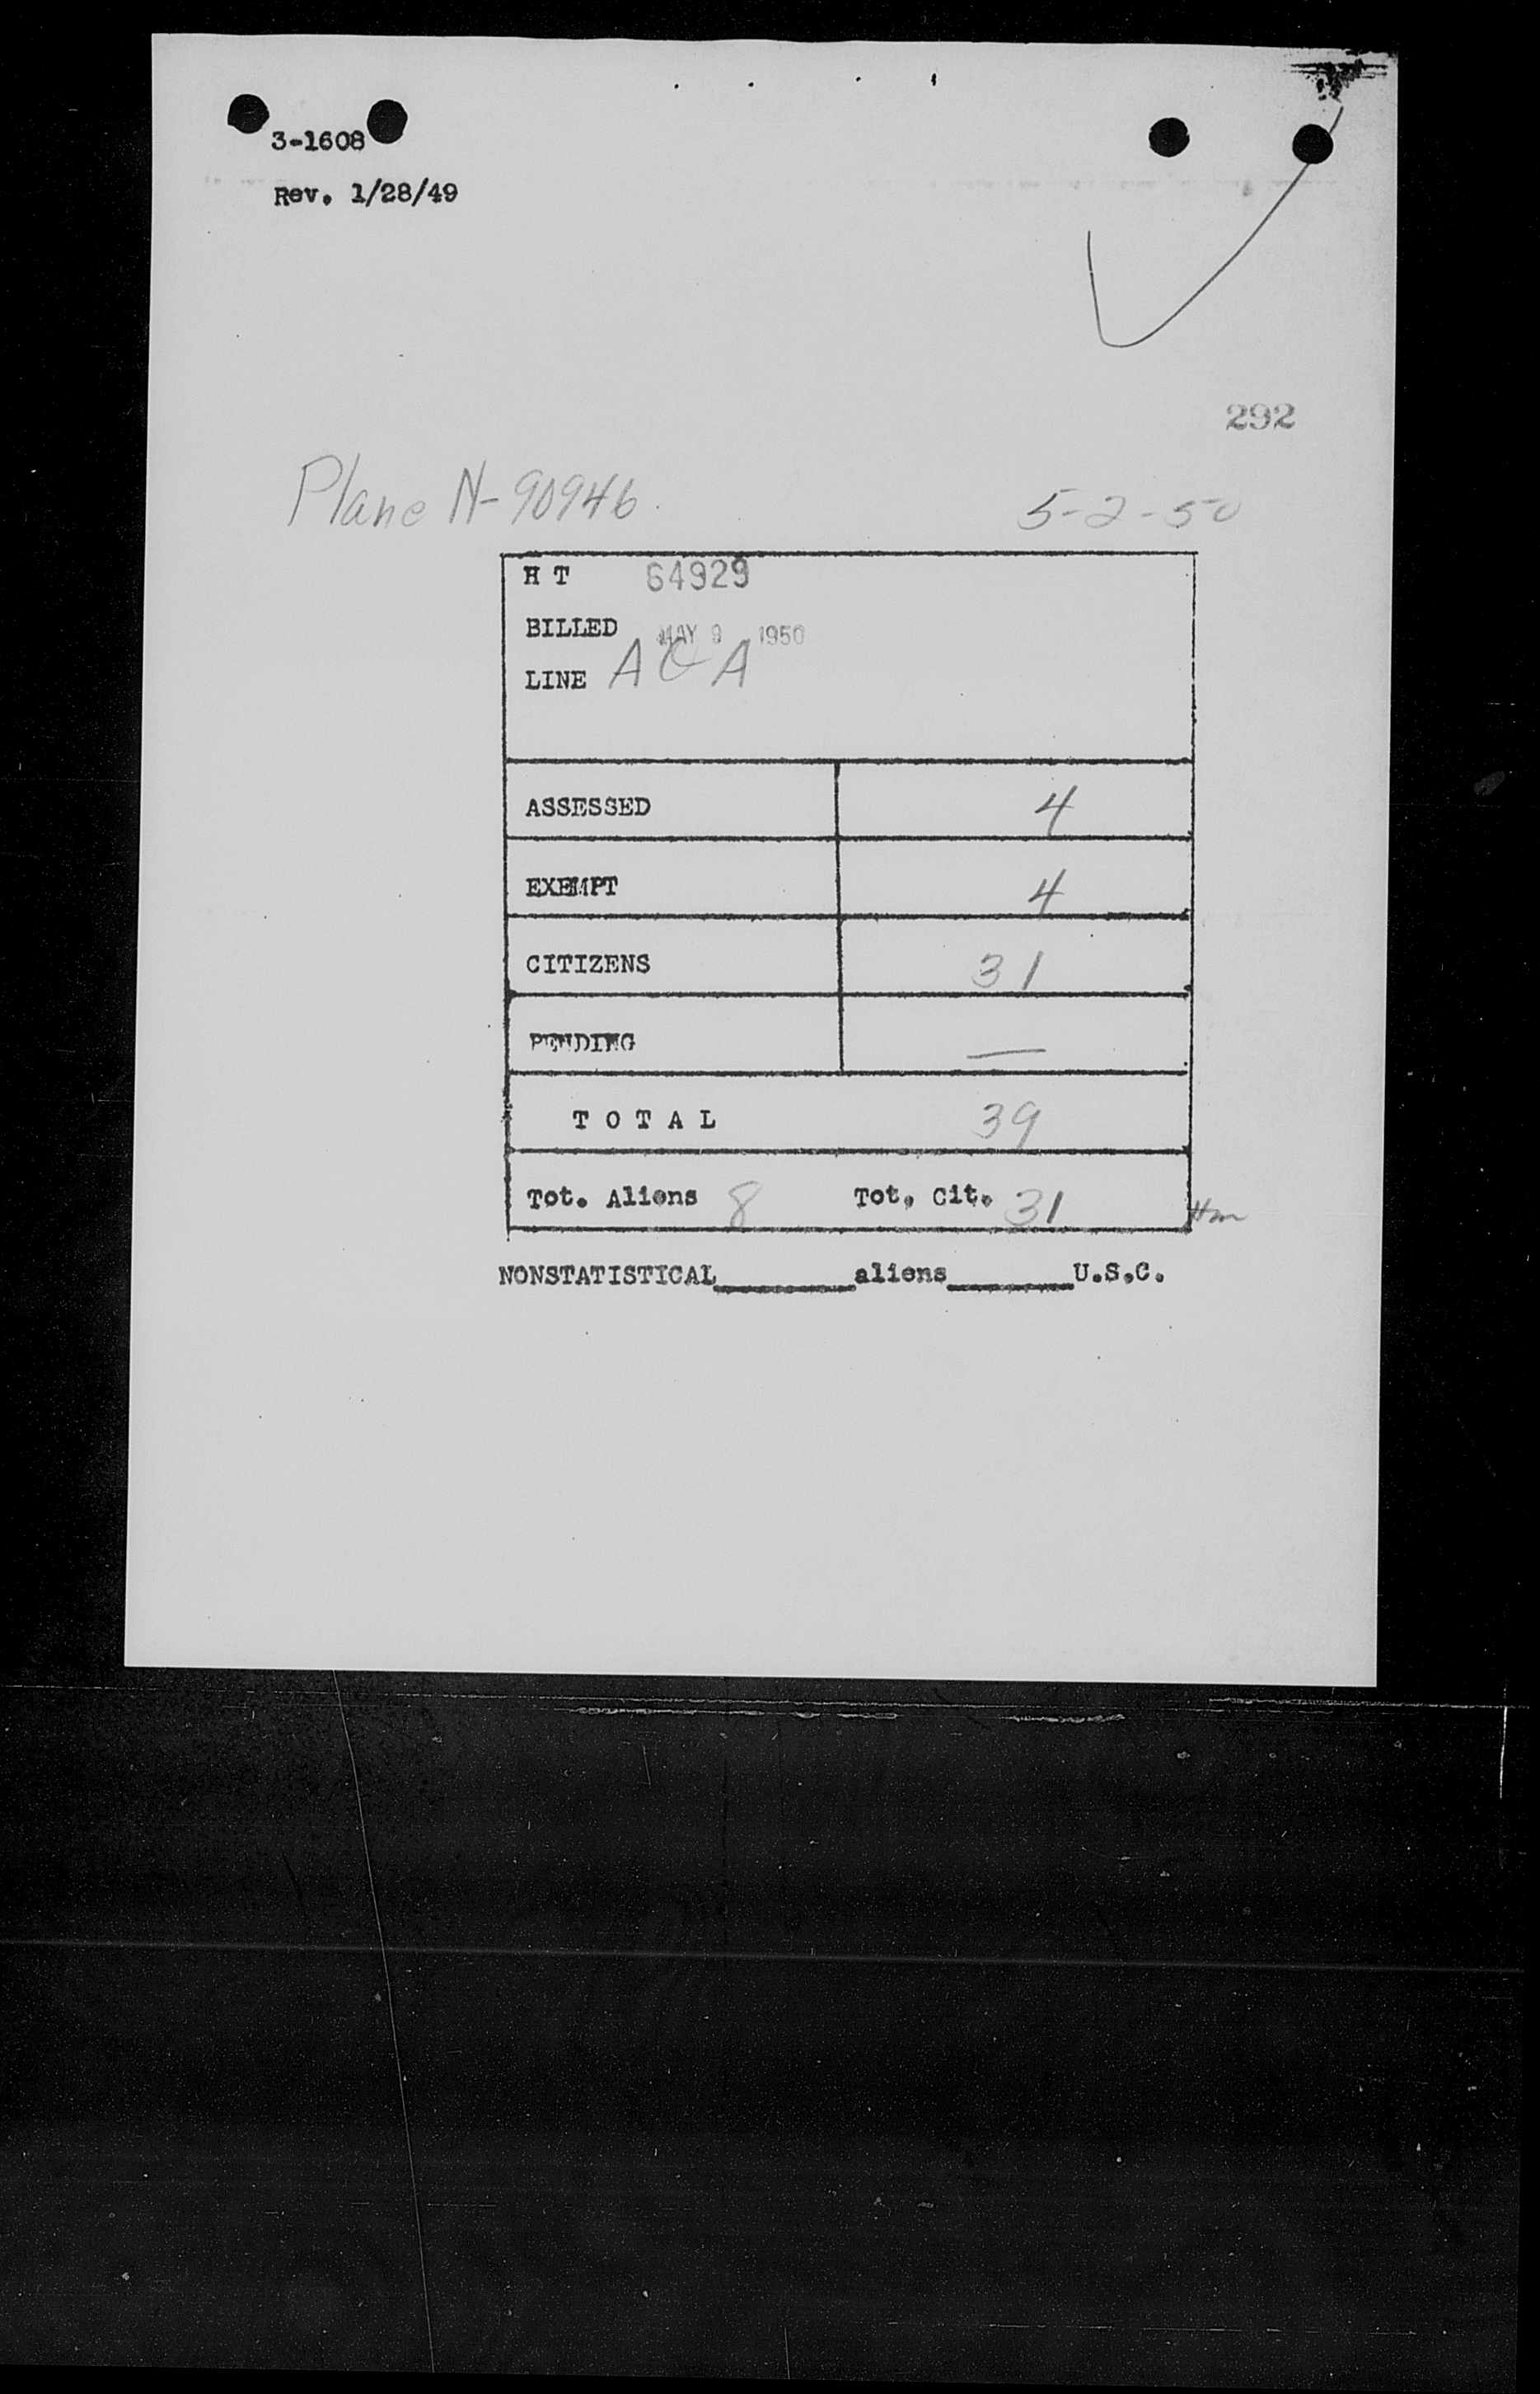 3-1608
Rev. 1/28/49
292
Plane N-90946
5-2-50
H T 64929
BILLED MAY 9 1950
LINE A O A
ASSESSED 4
EXEMPT 4
CITIZENS 31
PENDING —
T O T A L 39
Tot. Aliens 8 Tot. Cit. 31
NONSTATISTICAL________aliens________U.S.C.